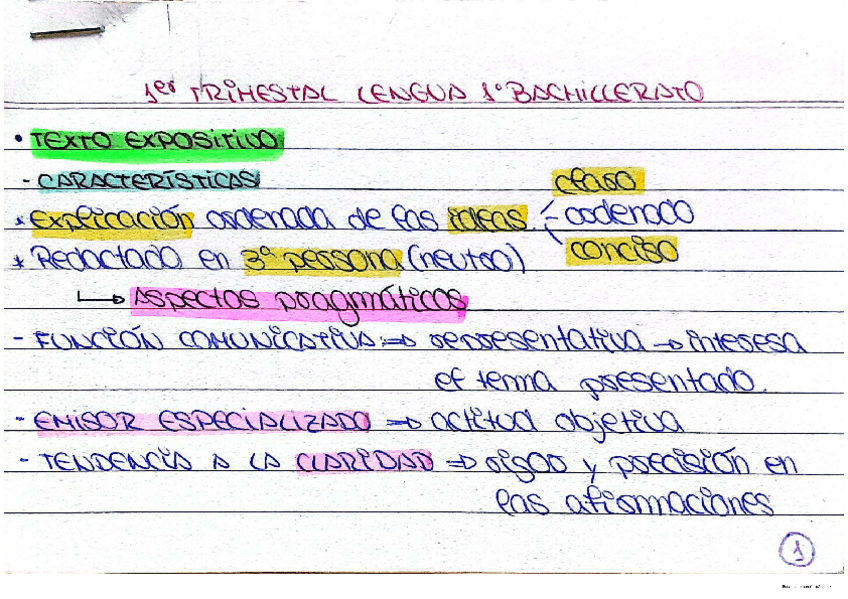 1er TRIMESTRAL LENGUA 1º BACHILLERATO
• TEXTO EXPOSITIVO
- CARACTERÍSTICAS
claro
* Explicación ordenada de las ideas - ordenado
conciso
* Redactado en 3ª persona (neutro)
↳ Aspectos pragmáticos
- FUNCIÓN COMUNICATIVA ⇒ representativa → interesa
el tema presentado.
- EMISOR ESPECIALIZADO ⇒ actitud objetiva
- TENDENCIA A LA CLARIDAD ⇒ rigor y precisión en
las afirmaciones
1